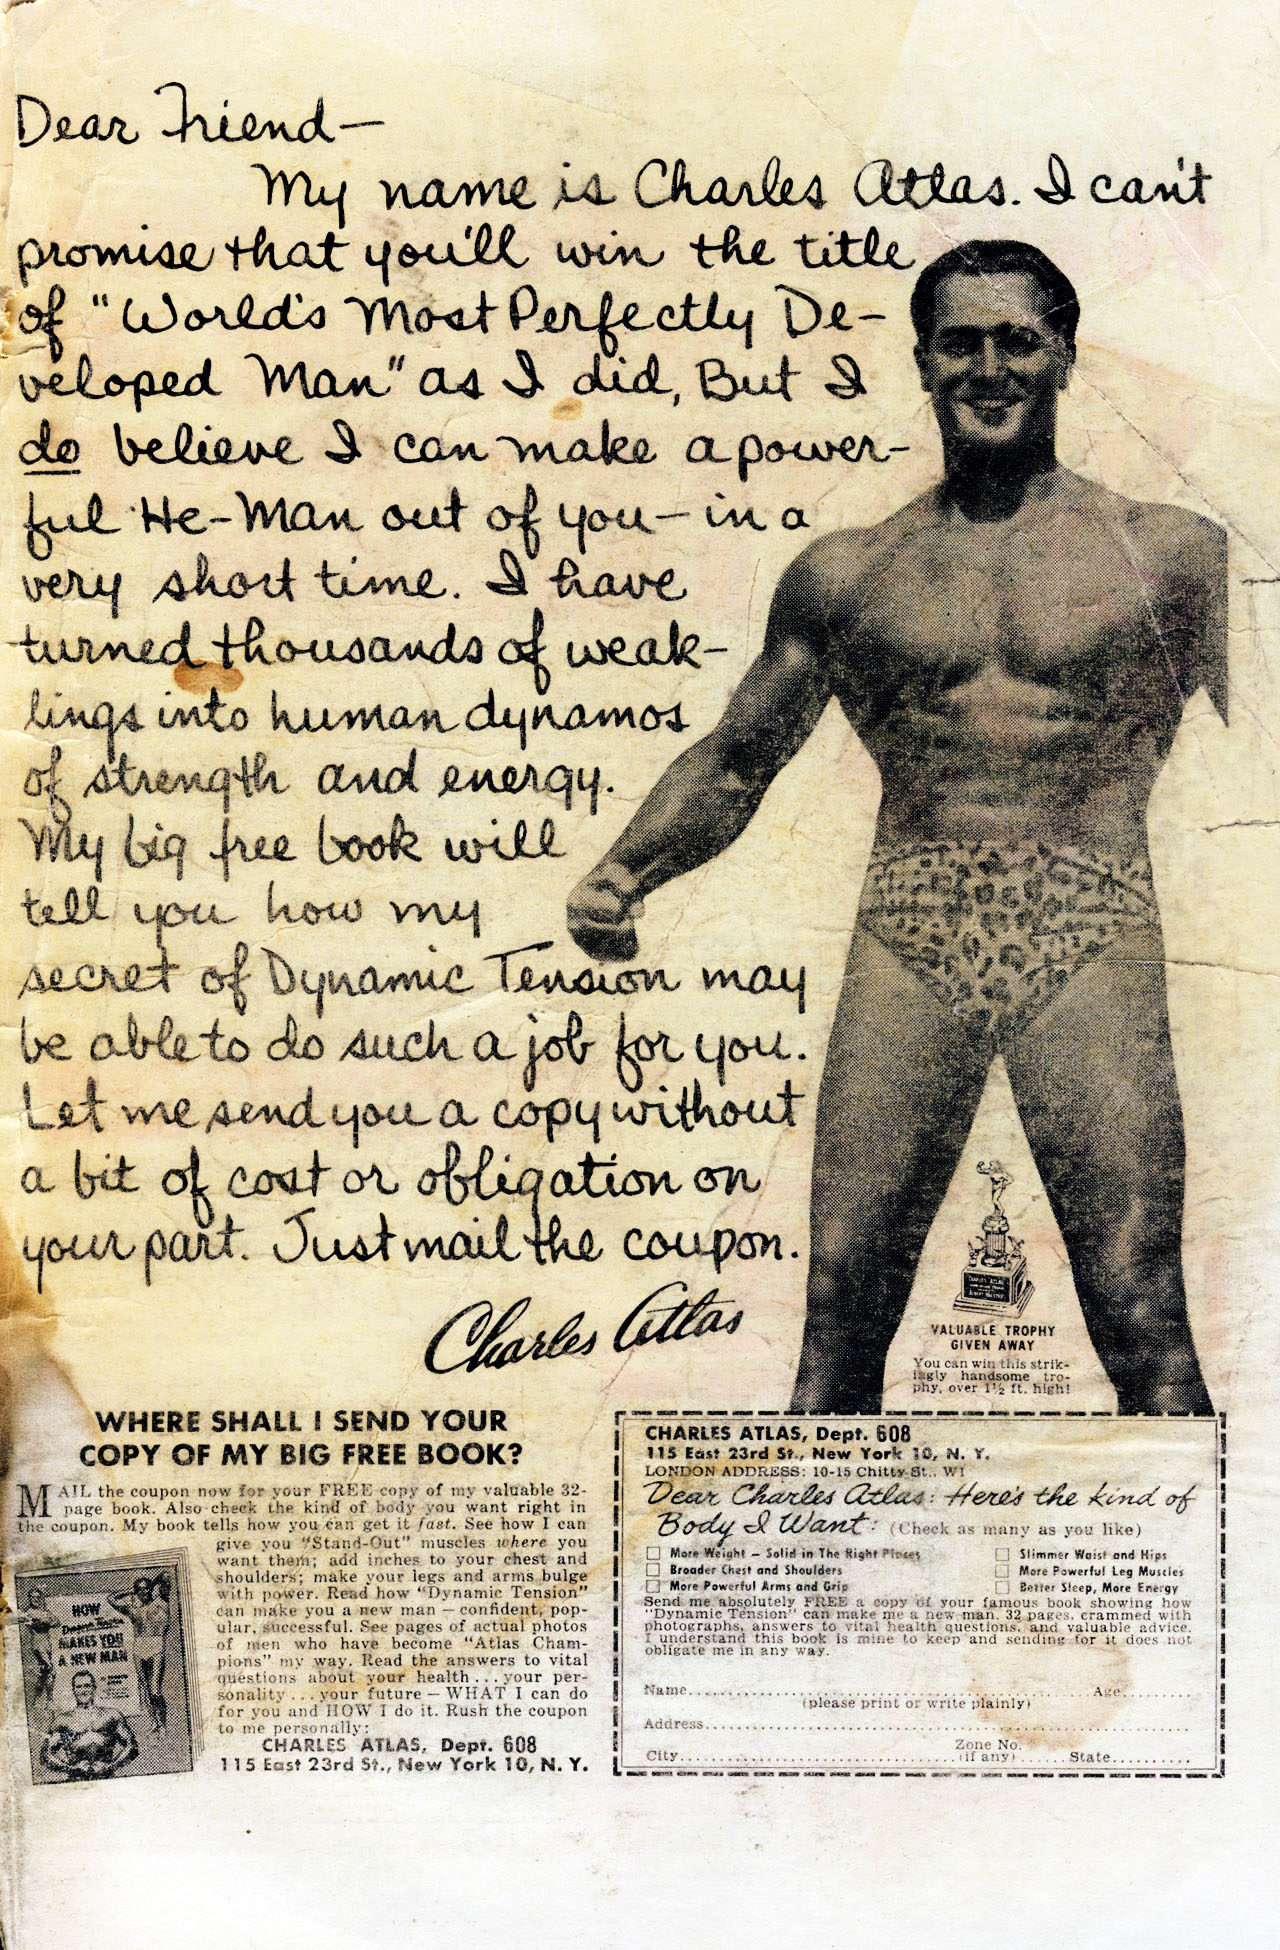 Dear Friend—
My name is Charles Atlas. I can't
promise that you'll win the title
of "World's Most Perfectly De-
veloped Man" as I did, But I
do believe I can make a power-
ful He-Man out of you—in a
very short time. I have
turned thousands of weak-
lings into human dynamos
of strength and energy.
My big free book will
tell you how my
secret of Dynamic Tension may
be able to do such a job for you.
Let me send you a copy without
a bit of cost or obligation on
your part. Just mail the coupon.
Charles Atlas
VALUABLE TROPHY
GIVEN AWAY
You can win this strik-
ingly handsome tro-
phy, over 1½ ft. high!
WHERE SHALL I SEND YOUR
COPY OF MY BIG FREE BOOK?
MAIL the coupon now for your FREE copy of my valuable 32-
page book. Also check the kind of body you want right in
the coupon. My book tells how you can get it fast. See how I can
give you "Stand-Out" muscles where you
want them; add inches to your chest and
shoulders; make your legs and arms bulge
with power. Read how "Dynamic Tension"
can make you a new man — confident, pop-
ular, successful. See pages of actual photos
of men who have become "Atlas Cham-
pions" my way. Read the answers to vital
questions about your health...your per-
sonality...your future — WHAT I can do
for you and HOW I do it. Rush the coupon
to me personally:
CHARLES ATLAS, Dept. 608
115 East 23rd St., New York 10, N. Y.
HOW
Dynamic Tension
MAKES YOU
A NEW MAN
CHARLES ATLAS, Dept. 608
115 East 23rd St., New York 10, N. Y.
LONDON ADDRESS: 10-15 Chitty St., W1
Dear Charles Atlas: Here's the kind of
Body I Want: (Check as many as you like)
More Weight — Solid in The Right Places
Broader Chest and Shoulders
More Powerful Arms and Grip
Slimmer Waist and Hips
More Powerful Leg Muscles
Better Sleep, More Energy
Send me absolutely FREE a copy of your famous book showing how
"Dynamic Tension" can make me a new man. 32 pages, crammed with
photographs, answers to vital health questions, and valuable advice.
I understand this book is mine to keep and sending for it does not
obligate me in any way.
Name.......... Age..........
(please print or write plainly)
Address..........
Zone No.
City.......... (if any)...... State..........